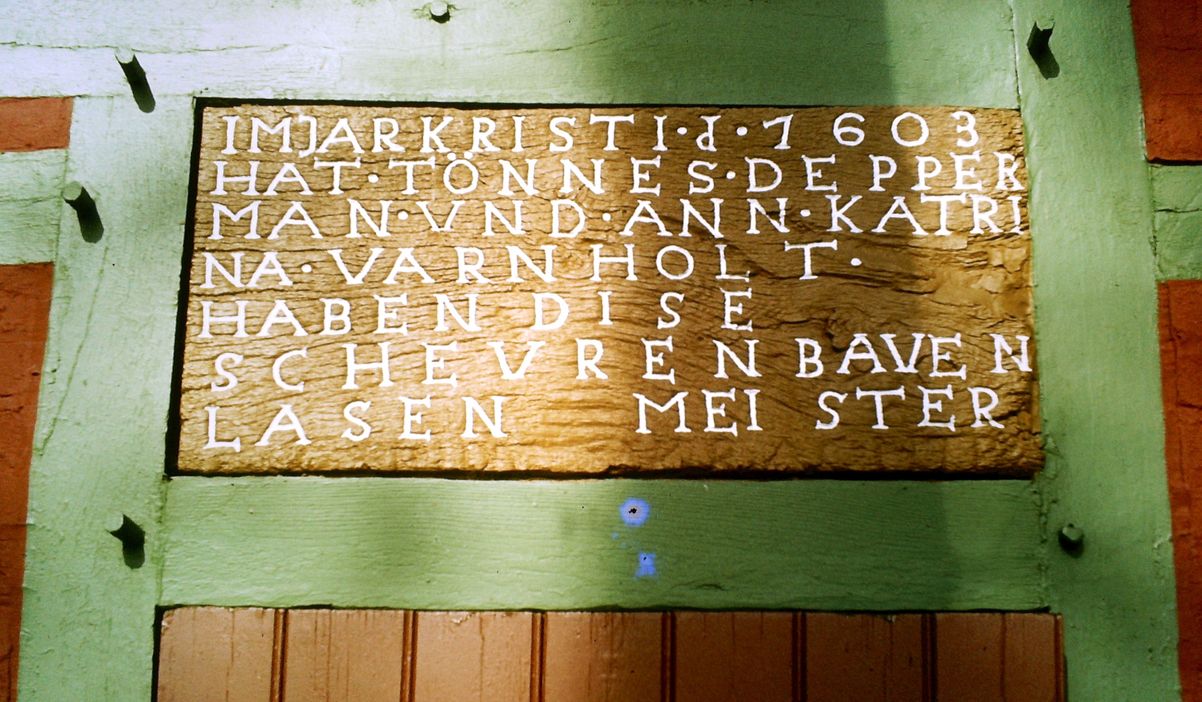 IMJARKRISTI·d·1603
HAT·TÖNNES·DEPPER
MAN·VND·ANN·KATRI
NA·VARNHOLT·
HABEN DISE
SCHEVREN BAVEN
LASEN MEISTER